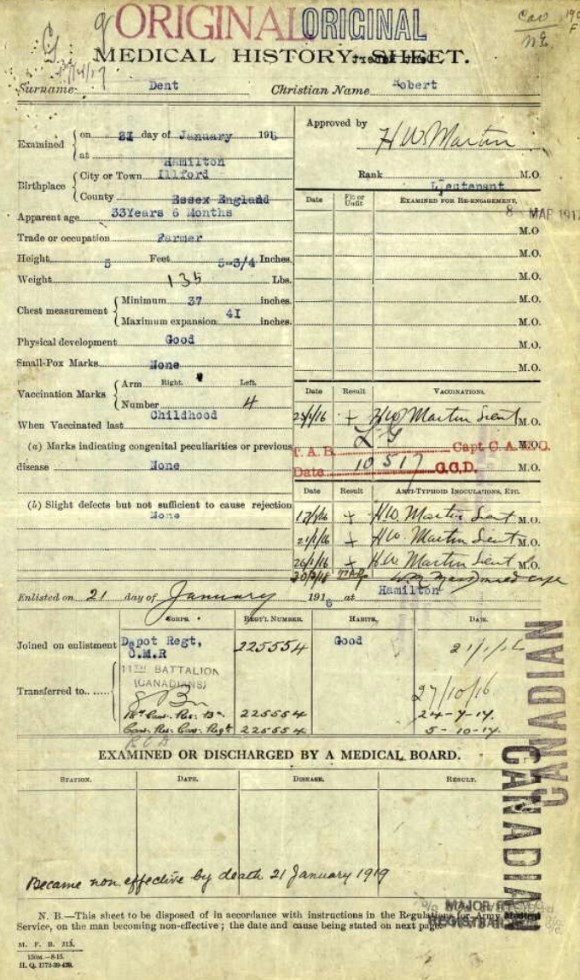 ORIGINAL ORIGINAL
MEDICAL HISTORY SHEET.
Surname Dent Christian Name Robert
Examined { on 21 day of January 1916
at Hamilton
Birthplace { City or Town Illford
County Essex England
Apparent age 33Years 6 Months
Trade or occupation Farmer
Height 5 Feet 5-3/4 Inches.
Weight 135 Lbs.
Chest measurement { Minimum 37 inches.
Maximum expansion 41 inches.
Physical development Good
Small-Pox Marks None
Vaccination Marks { Arm Right. Left.
Number 4
When Vaccinated last Childhood
(a) Marks indicating congenital peculiarities or previous
disease None
(b) Slight defects but not sufficient to cause rejection
None
Approved by H W. Martin
Rank Lieutenant M.O.
Date Fit or Unfit Examined for Re-engagement,
8 MAR 1917
M.O
M.O.
M.O.
M.O.
M.O.
M.O.
Date Result Vaccinations.
+ H W Martin Lieut M.O.
T. A. B. Capt C. A. M.C.
Date 10 5 17 C.C.D. M.O.
Date Result Anti-Typhoid Inoculations, Etc.
+ H.W. Martin Lieut M.O.
21/1/16 + H.W. Martin Lieut M.O.
+ H.W. Martin Lieut M.O.
Enlisted on 21 day of January 1916 at Hamilton
Corps. Reg't. Number. Habits. Date.
Joined on enlistment Depot Regt, C.M.R 225554 Good 21/1/16
Transferred to 11TH BATTALION
(CANADIANS) 27/10/16
225554
Can. Res. Cav. Regt 225554
EXAMINED OR DISCHARGED BY A MEDICAL BOARD.
Station. Date. Disease. Result.
Became non effective by death 21 January 1919
CANADIAN
CANADIAN
N. B.—This sheet to be disposed of in accordance with instructions in the Regulations for Army Medical
Service, on the man becoming non-effective; the date and cause being stated on next page.
MAJOR
REGISTRAR
M. F. B. 313.
H. Q. 1772-39-439.